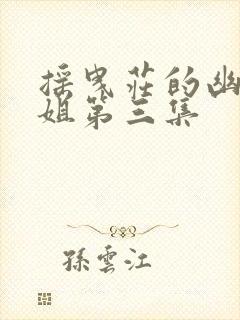 採曳莊的幽
姐第三集
孫雲江